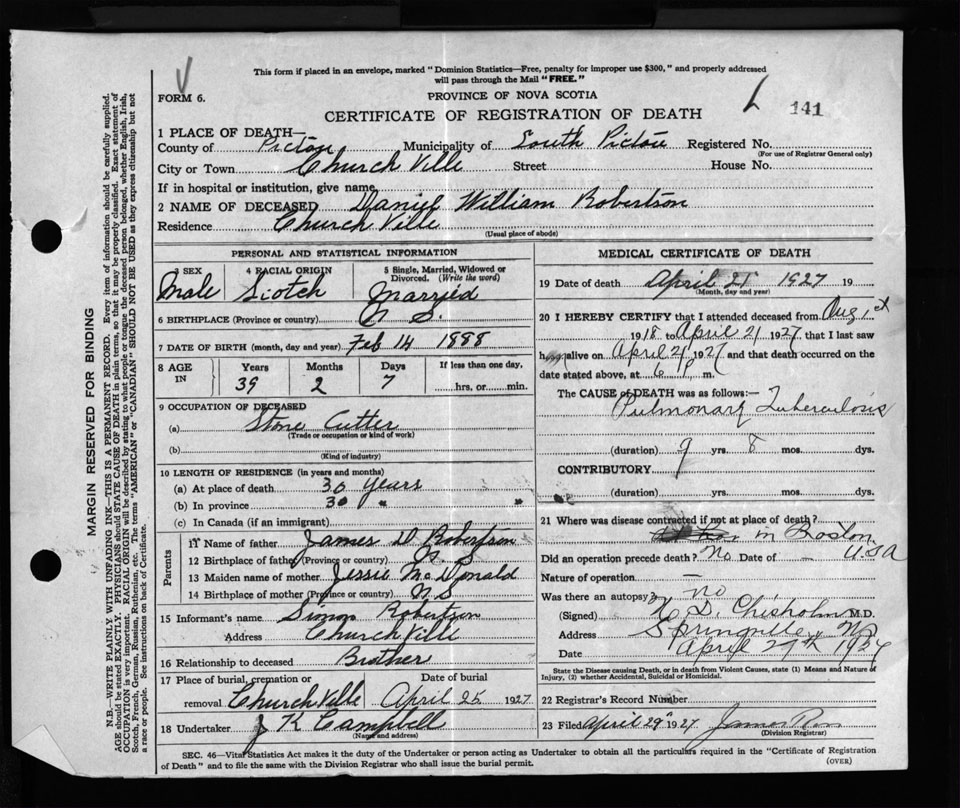 This form if placed in an envelope, marked "Dominion Statistics—Free, penalty for improper use $300," and properly addressed
will pass through the Mail "FREE."
FORM 6.
PROVINCE OF NOVA SCOTIA
CERTIFICATE OF REGISTRATION OF DEATH
141
1 PLACE OF DEATH—
County of Pictou Municipality of South Pictou Registered No.
(For use of Registrar General only)
City or Town Church Ville Street House No.
If in hospital or institution, give name
2 NAME OF DECEASED Daniel William Robertson
Residence Church Ville
(Usual place of abode)
PERSONAL AND STATISTICAL INFORMATION
3 SEX 4 RACIAL ORIGIN 5 Single, Married, Widowed or Divorced. (Write the word)
Male Scotch Married
6 BIRTHPLACE (Province or country) N S.
7 DATE OF BIRTH (month, day and year) Feb 14 1888
8 AGE IN Years Months Days If less than one day,
39 2 7 hrs. or min.
9 OCCUPATION OF DECEASED
(a) Stone Cutter
(Trade or occupation or kind of work)
(b)
(Kind of industry)
10 LENGTH OF RESIDENCE (in years and months)
(a) At place of death 30 years
(b) In province 30 " "
(c) In Canada (if an immigrant)
Parents
11 Name of father James D Robertson
12 Birthplace of father (Province or country) N S
13 Maiden name of mother Jessie McDonald
14 Birthplace of mother (Province or country) N S
15 Informant's name Simon Robertson
Address Church Ville
16 Relationship to deceased Brother
17 Place of burial, cremation or removal Date of burial
Church Ville April 25 1927
18 Undertaker J K Campbell
(Name and address)
MEDICAL CERTIFICATE OF DEATH
19 Date of death April 21 1927 19
(Month, day and year)
20 I HEREBY CERTIFY that I attended deceased from Aug 1st
1918 to April 21 1927 that I last saw
h im alive on April 21 1927 and that death occurred on the
date stated above, at 6 P m.
The CAUSE of DEATH was as follows:—
Pulmonary Tuberculosis
(duration) 9 yrs. 8 mos. dys.
CONTRIBUTORY
(duration) yrs. mos. dys.
21 Where was disease contracted if not at place of death?
in Boston
USA
Did an operation precede death? No Date of —
Nature of operation —
Was there an autopsy? no
(Signed) D. Chisholm M.D.
Address Springville NS
Date April 27th 1927
State the Disease causing Death, or in death from Violent Causes, state (1) Means and Nature of
Injury, (2) whether Accidental, Suicidal or Homicidal.
22 Registrar's Record Number
23 Filed April 29" 1927 James
(Division Registrar)
SEC. 46—Vital Statistics Act makes it the duty of the Undertaker or person acting as Undertaker to obtain all the particulars required in the "Certificate of Registration
of Death" and to file the same with the Division Registrar who shall issue the burial permit.
(OVER)
MARGIN RESERVED FOR BINDING
N.B.—WRITE PLAINLY, WITH UNFADING INK—THIS IS A PERMANENT RECORD. Every item of information should be carefully supplied.
AGE should be stated EXACTLY. PHYSICIANS should STATE CAUSE OF DEATH in plain terms, so that it may be properly classified. Exact statement of
OCCUPATION is very important. RACIAL ORIGIN will be described by stating to what people or tongue the deceased person belonged, whether English, Irish,
Scotch, French, German, Russian, Ruthenian, etc. The terms "AMERICAN" or "CANADIAN" SHOULD NOT BE USED as they express citizenship but not
a race or people. See instructions on back of Certificate.